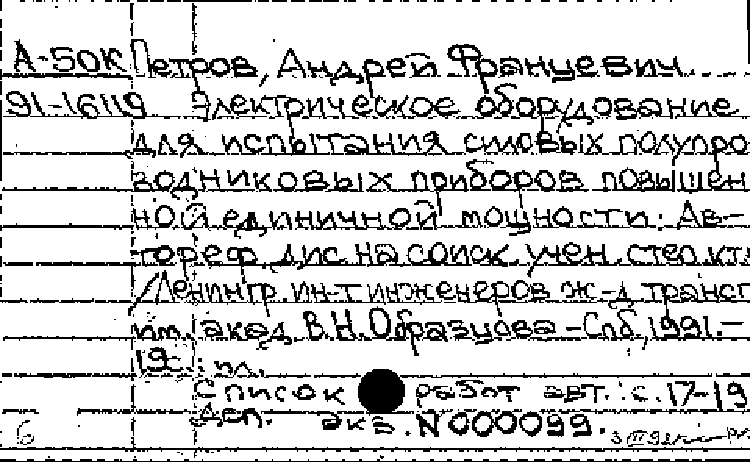 А-50К Петров, Андрей Францевич
91-16119 Электрическое оборудование
для испытания силовых полупро
водниковых приборов повышен
ной единичной мощности: Ав-
тореф. дис на соиск учен. степ. ктн
/Ленингр. ин-т инженеров ж-д трансп
им. акад. В.Н.Образцова -Спб, 1991.-
19с.: ил.
Список работ авт.: с.17-19
Деп. экз. N 000099.
Б